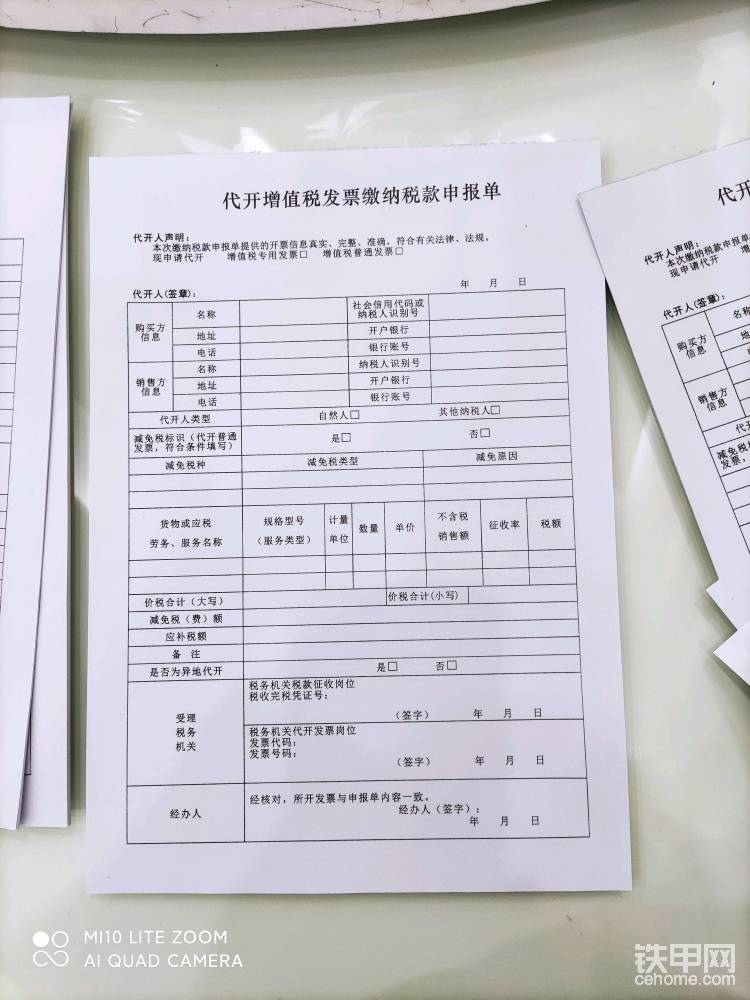 代开增值税发票缴纳税款申报单
代开人声明：
本次缴纳税款申报单提供的开票信息真实、完整、准确，符合有关法律、法规。
现申请代开 增值税专用发票□ 增值税普通发票□
代开人(签章)： 年 月 日
购买方信息 名称 社会信用代码或纳税人识别号
地址 开户银行
电话 银行账号
销售方信息 名称 纳税人识别号
地址 开户银行
电话 银行账号
代开人类型 自然人□ 其他纳税人□
减免税标识（代开普通发票，符合条件填写） 是□ 否□
减免税种 减免税类型 减免原因
货物或应税劳务、服务名称 规格型号（服务类型） 计量单位 数量 单价 不含税销售额 征收率 税额
价税合计（大写） 价税合计(小写)
减免税（费）额
应补税额
备 注
是否为异地代开 是□ 否□
受理税务机关 税务机关税款征收岗位
税收完税凭证号：
（签字） 年 月 日
税务机关代开发票岗位
发票代码：
发票号码：
（签字） 年 月 日
经办人 经核对，所开发票与申报单内容一致。
经办人（签字）：
年 月 日
代开
代开人声明：
本次缴纳税款申报单
现申请代开 增
代开人(签章)：
购买方信息 名称
地
电
销售方信息
代
减免税
发票，
货
劳务、
MI10 LITE ZOOM
AI QUAD CAMERA
铁甲网
cehome.com